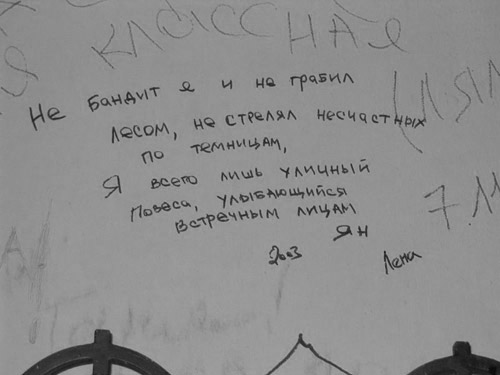 Я КЛАССНАЯ
Не бандит я и не грабил
лесом, не стрелял несчастных
по темницам,
Я всего лишь уличный
повеса, улыбающийся
встречным лицам
Ян
2003
Лена
7.11